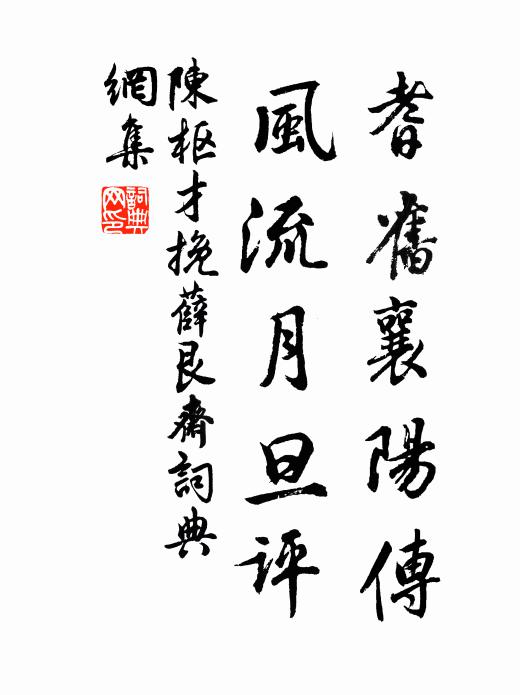 耆舊襄陽傳
風流月旦評
陳樞才挽薛艮齋詞典
網集
詞典網印